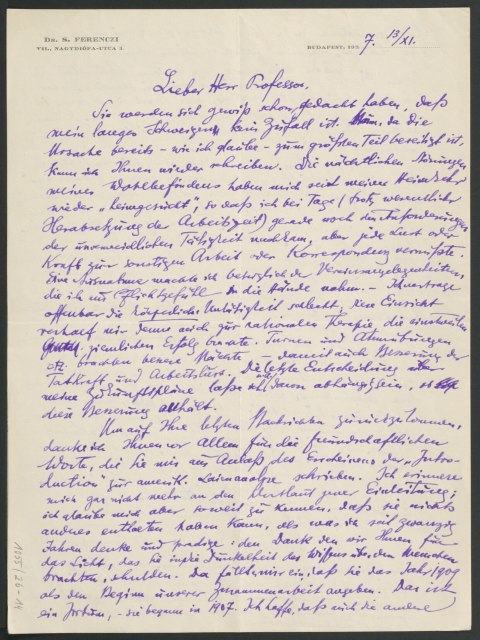 DR. S. FERENCZI
VII., NAGYDIÓFA-UTCA 3.
BUDAPEST, 193 7. 13/XI.
Lieber Herr Professor,
Sie werden sich gewiß schon gedacht haben, daß
mein langes Schweigen kein Zufall ist. da die
Ursache bereits – wie ich glaube – zum größten Teil beseitigt ist,
kann ich Ihnen wieder schreiben. Die nächtlichen Störungen
meines Wohlbefindens haben mich seit meiner Heimkehr
wieder „heimgesucht“, so daß ich bei Tage (trotz wesentlicher
Herabsetzung der Arbeitszeit) gerade noch den Anforderungen
der unvermeidlichen Tätigkeit nachkam, aber jede Lust oder
Kraft zur sonstigen Arbeit oder Korrespondenz vermißte.
Eine Ausnahme machte ich bezüglich der Vereinsangelegenheiten,
die ich aus Pflichtgefühl in die Hände nahm. –
offenbar die körperliche Untätigkeit schlecht, diese Einsicht
verhalf mir denn auch zur rationellen Therapie, die einstweilen
ziemlichen Erfolg brachte. Turnen und Atmübungen
etc. brachten bessere Nächte – damit auch Besserung der
Tatkraft und Arbeitslust. Die letzte Entscheidung über
meine Zukunftspläne lasse ich davon abhängig sein, ob
diese Besserung anhält.
Um auf Ihre letzten Nachrichten zurückzukommen,
danke ich Ihnen vor Allem für die freundschaftlichen
Worte, die Sie mir aus Anlaß des Erscheinens der „Intro-
duction“ zur amerik. schrieben. Ich erinnere
mich gar nicht mehr an den Wortlaut jener Einleitung;
ich glaube mich aber soweit zu kennen, daß sie nichts
anderes enthalten haben kann, als was ich seit zwanzig
Jahren denke und predige: den Dank den wir Ihnen für
das Licht, das Sie in die Dunkelheit des Wissens über den Menschen
brachten, schulden. Da fällt mir ein, daß Sie das Jahr 1909
als den Beginn unserer Zusammenarbeit angeben. Das ist
ein Irrtum, – sie begann in 1907. Ich hoffe, daß auch die andere